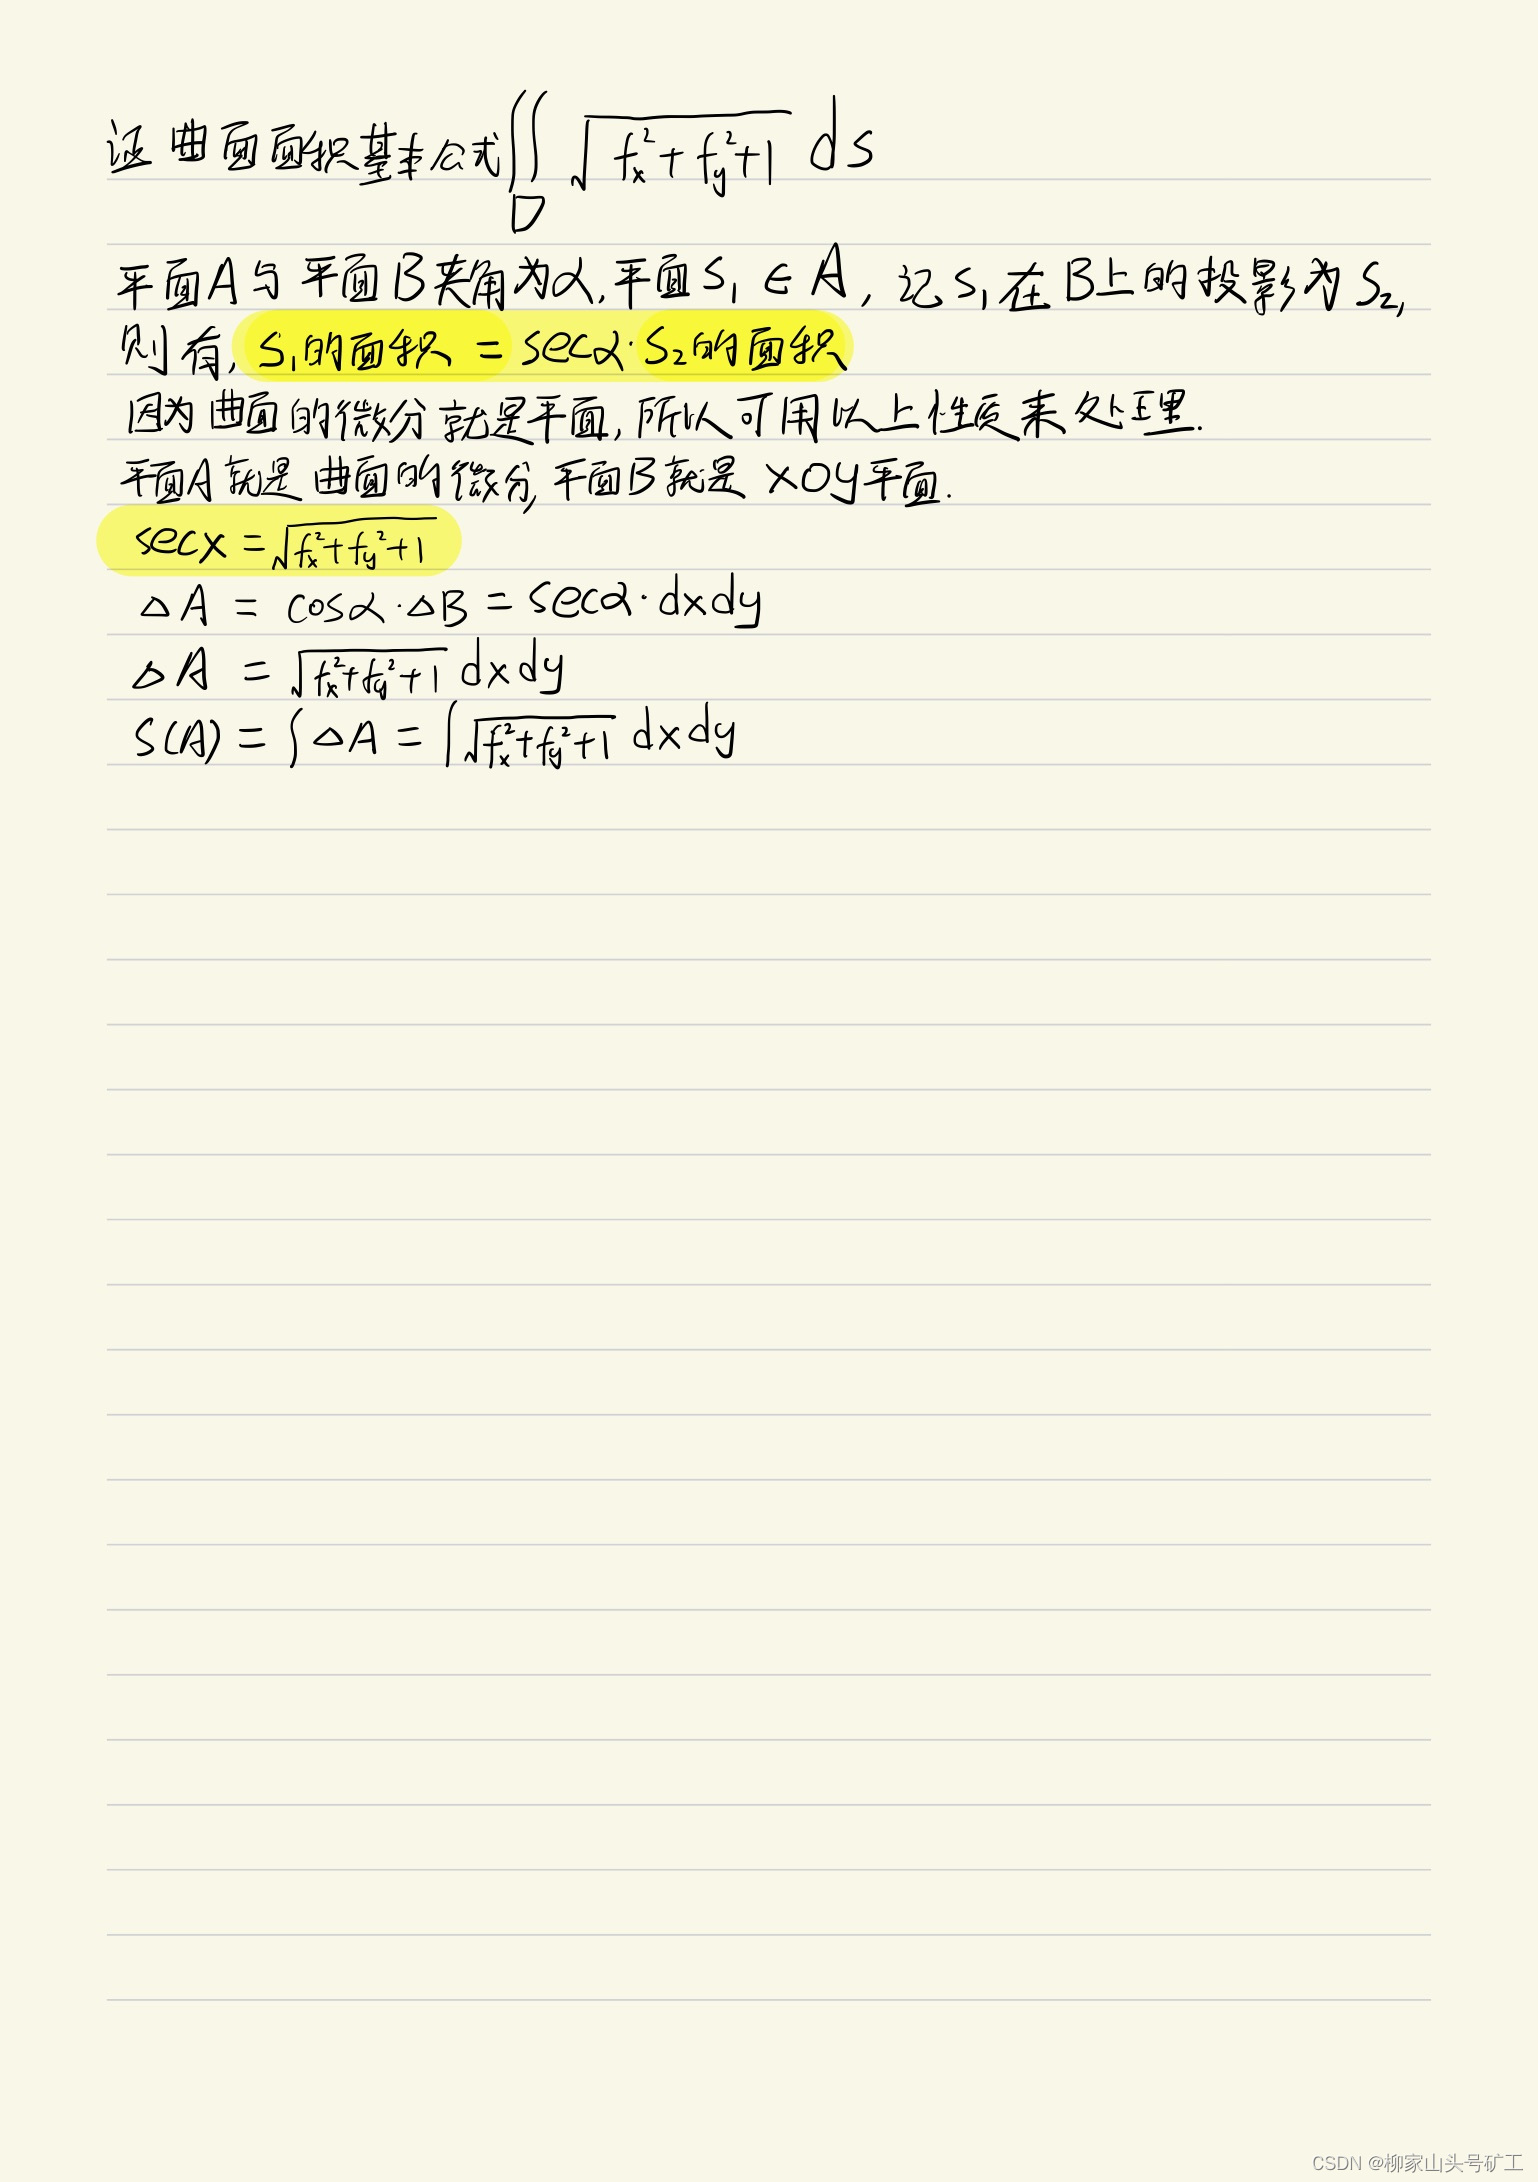 证曲面面积基本公式∬_D √(f_x²+f_y²+1) ds
平面A与平面B夹角为α,平面S₁∈A,记S₁在B上的投影为S₂,
则有,S₁的面积=secα·S₂的面积
因为曲面的微分就是平面,所以可用以上性质来处理.
平面A就是曲面的微分,平面B就是xoy平面.
secx=√(f_x²+f_y²+1)
△A=cosα·△B=secα·dxdy
△A=√(f_x²+f_y²+1) dxdy
S(A)=∫△A=∫√(f_x²+f_y²+1) dxdy
CSDN @柳家山头号矿工